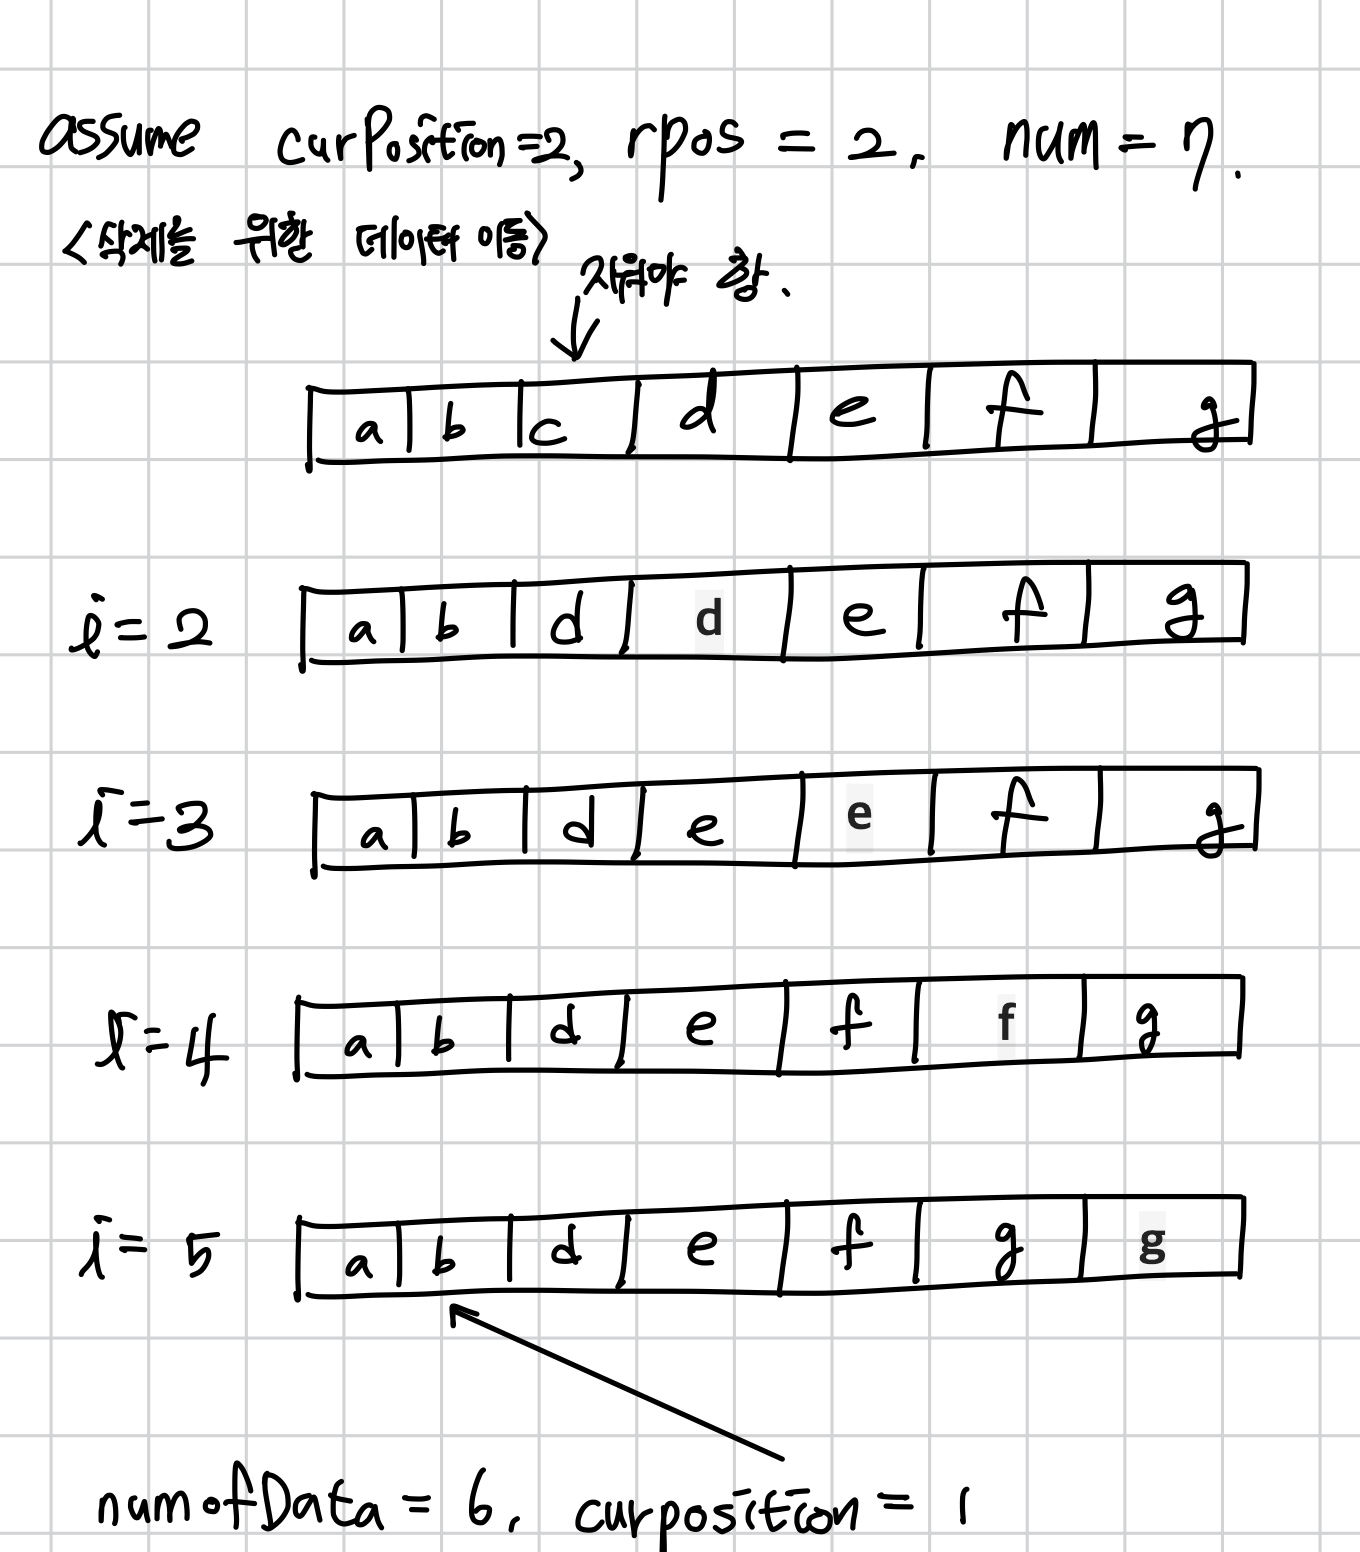 assume curPosition=2, rpos = 2. num = 7.
<삭제를 위한 데이터 이동>
지워야 함.
a b c d e f g
i = 2 a b d d e f g
i = 3 a b d e e f g
i = 4 a b d e f f g
i = 5 a b d e f g g
numofData = 6, curposition = 1